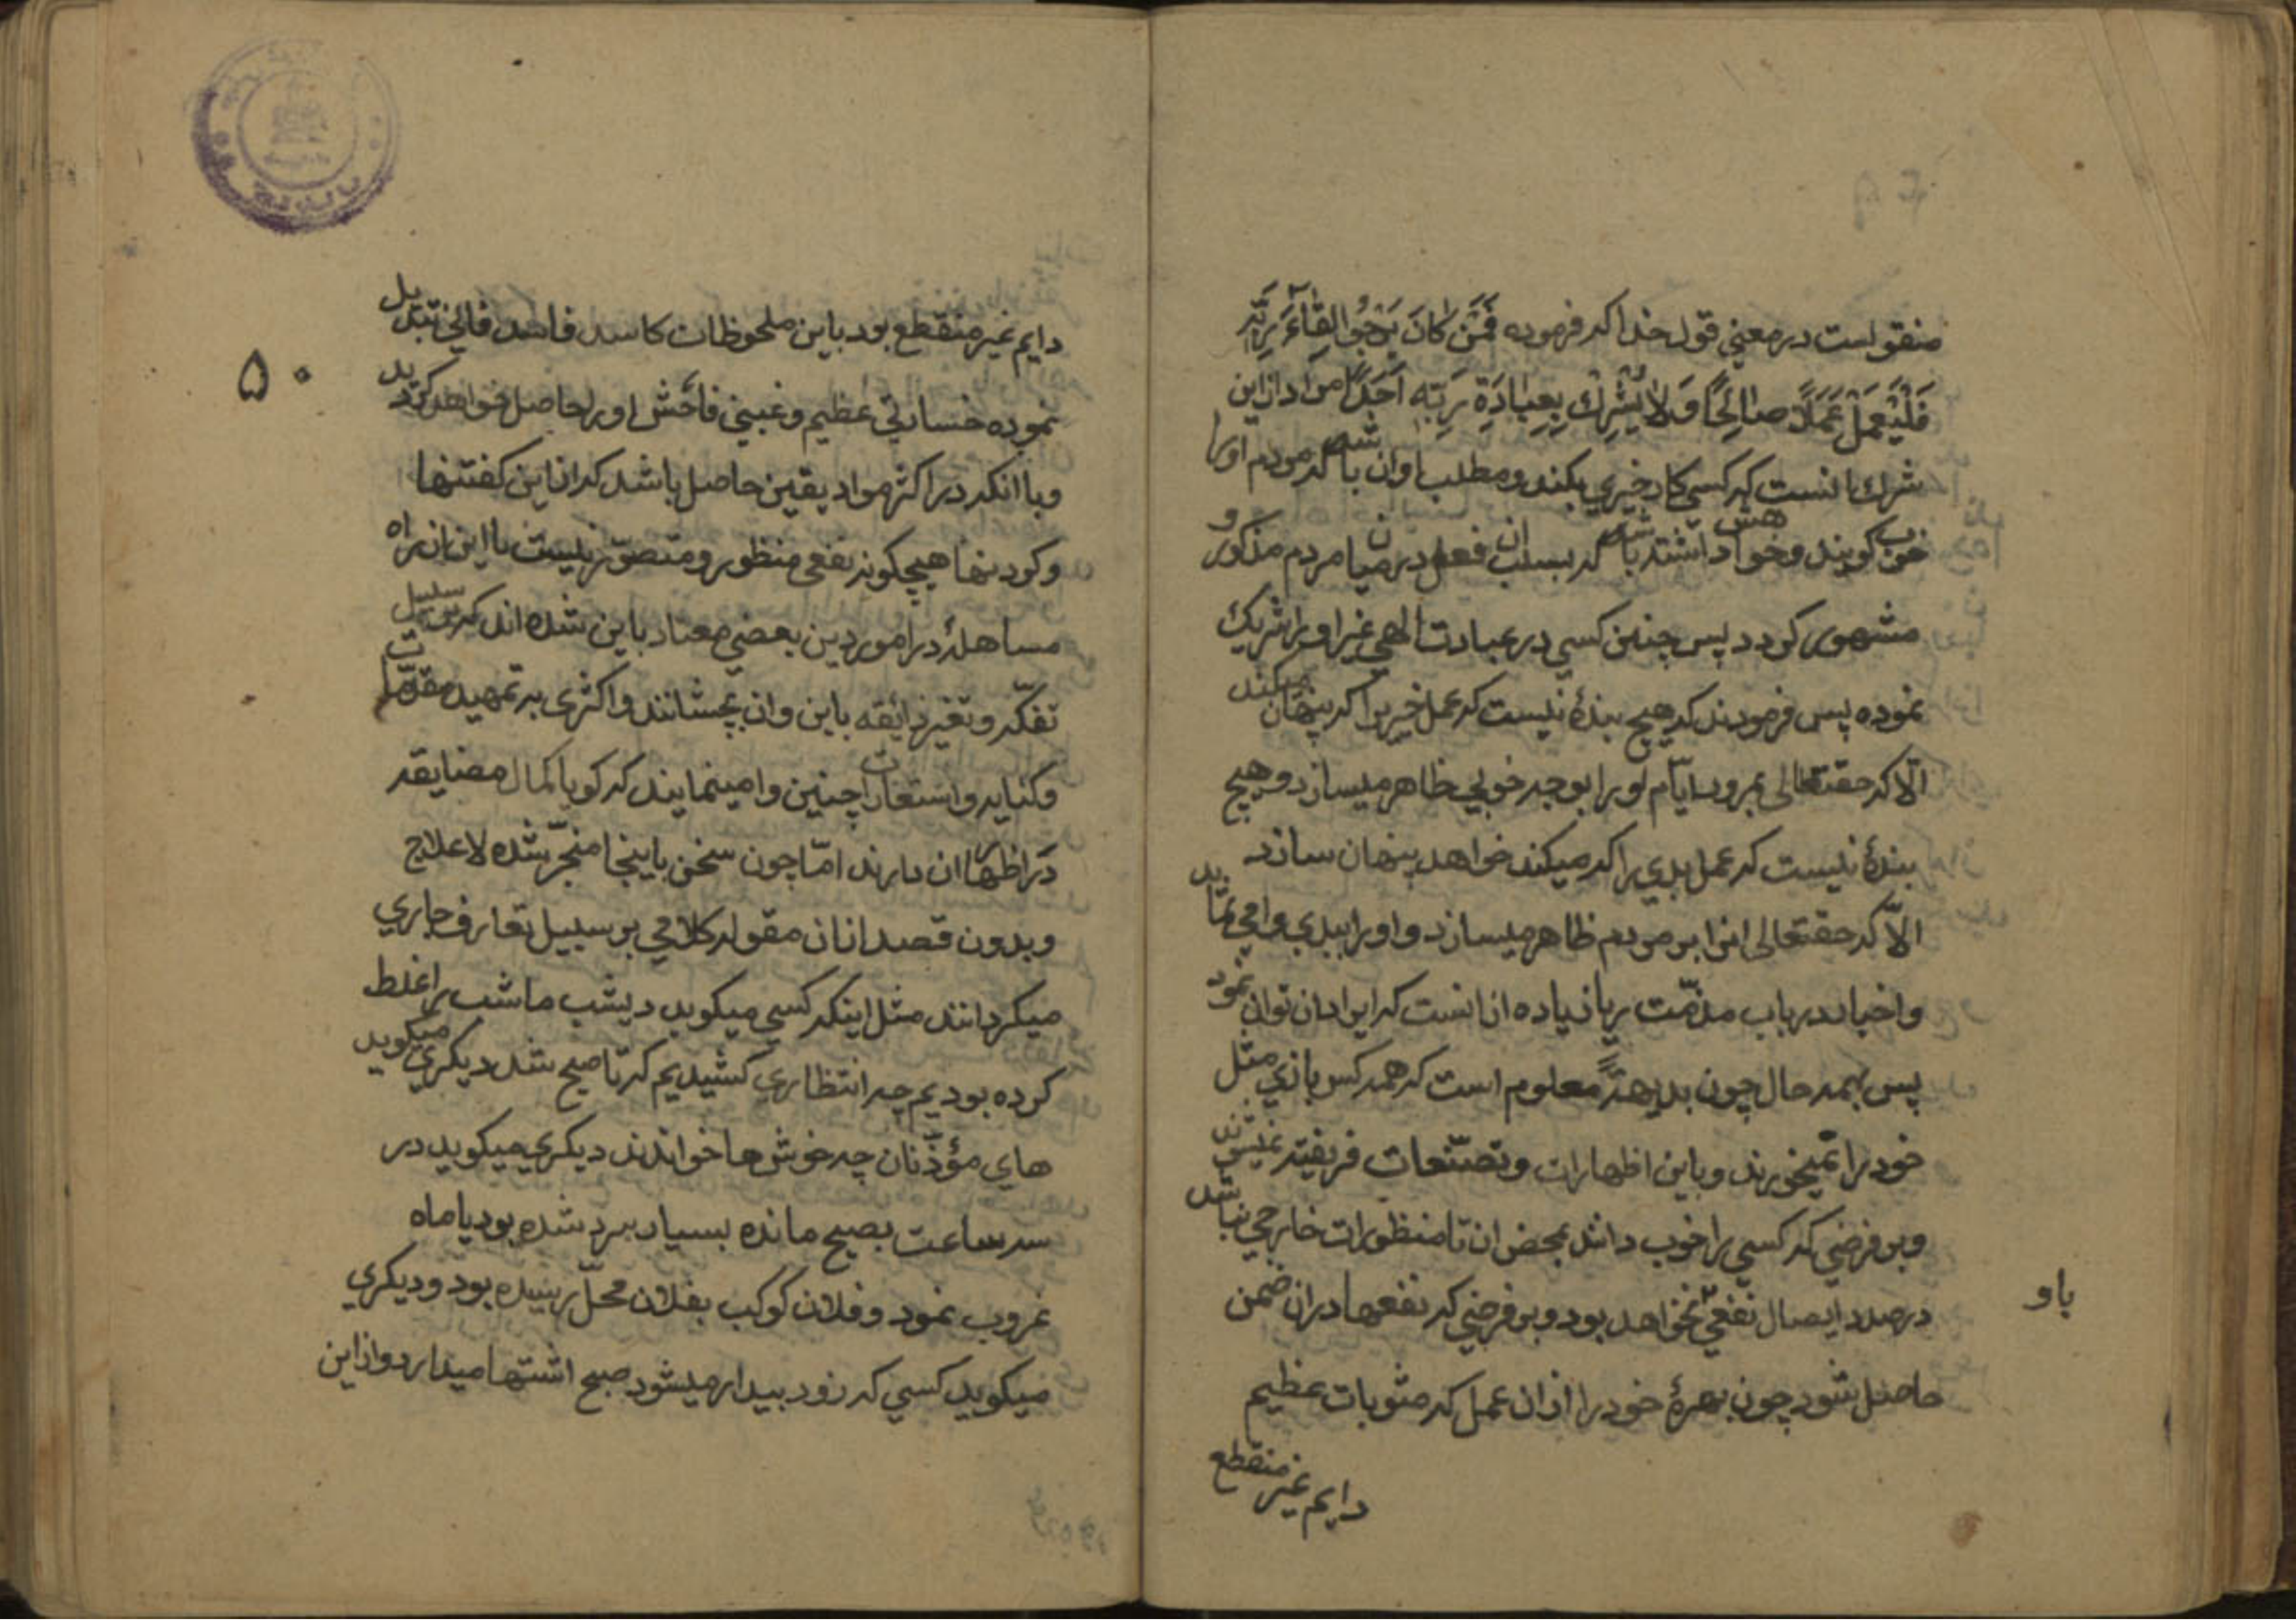 منقولست در معنی قول خدا که فرموده فَمَنْ كَانَ يَرْجُوا لِقَاءَ رَبِّهِ
فَلْيَعْمَلْ عَمَلًا صَالِحًا وَلَا يُشْرِكْ بِعِبَادَةِ رَبِّهِ أَحَدًا مراد ازین
شرك انست که کسی کار خیری بکند و مطلب او ان باشد که مردم او را
خوب کویند و خواهش داشته باشد که بسبب ان فعل در میان مردم مذکور و
مشهور کردد پس چنین کسی در عبادت الهی غیر او را شریك
نموده پس فرمودند که هیچ بندهٔ نیست که عمل خیر را که پنهان میکند
الّا که حقتعالی بمرور ایّام او را بوجه خوبی ظاهر میسازد و هیچ
بندهٔ نیست که عمل بدی را که میکند خواهد پنهان سازد
الّا که حقتعالی انرا بر مردم ظاهر میسازد و او را ببدی وامی نماید
و اخبار در باب مذمّت ریا زیاده از انست که ایراد ان توان نمود
پس بهمه حال چون بدیهةً معلوم است که همه کس بازی مثل
خود را نمیخورند و باین اظهارات و تصنّعات فریفته نمیشوند
و بر فرضی که کسی را خوب دانند بمحض ان تا منظورات خارجی نباشد
در صدد ایصال نفعی نخواهد بود و بر فرضی که نفعها در ان ضمن
باو
حاصل شود چون بهرهٔ خود را از ان عمل که مثوبات عظیم
دایم غیر منقطع
۵۰
دایم غیر منقطع بود باین ملحوظات کاسد فاسد فانی تبدیل
نموده خسارتی عظیم و غبنی فاحش او را حاصل خواهد کردید
و با انکه در اکثر مواد یقین حاصل باشد که از این کفتنها
و کردنها هیچکونه نفعی منظور و متصوّر نیست با این از راه
مساهله در امور دین بعضی معتاد باین شده اند که بر سبیل
تفکّه و تغیر ذائقه باین و ان بچشانند و اکثری به تمهید مقدّمات
و کنایه و استعارات چنین وامینمایند که کویا کمال مضایقه
در اظهار ان دارند امّا چون سخن باینجا منجرّ شده لا علاج
و بدون قصد از ان مقوله کلامی بر سبیل تعارف جاری
میکردانند مثل اینکه کسی میکوید دیشب ما شب را غلط
کرده بودیم چه انتظاری کشیدیم که تا صبح شد دیکری میکوید
های مؤذّنان چه خوش ها خواندند دیکری میکوید در
سه ساعت بصبح مانده بسیار سرد شده بود یا ماه
غروب نمود و فلان کوکب بفلان محلّ رسیده بود و دیکری
میکوید کسی که زود بیدار میشود صبح اشتها میدارد و از این